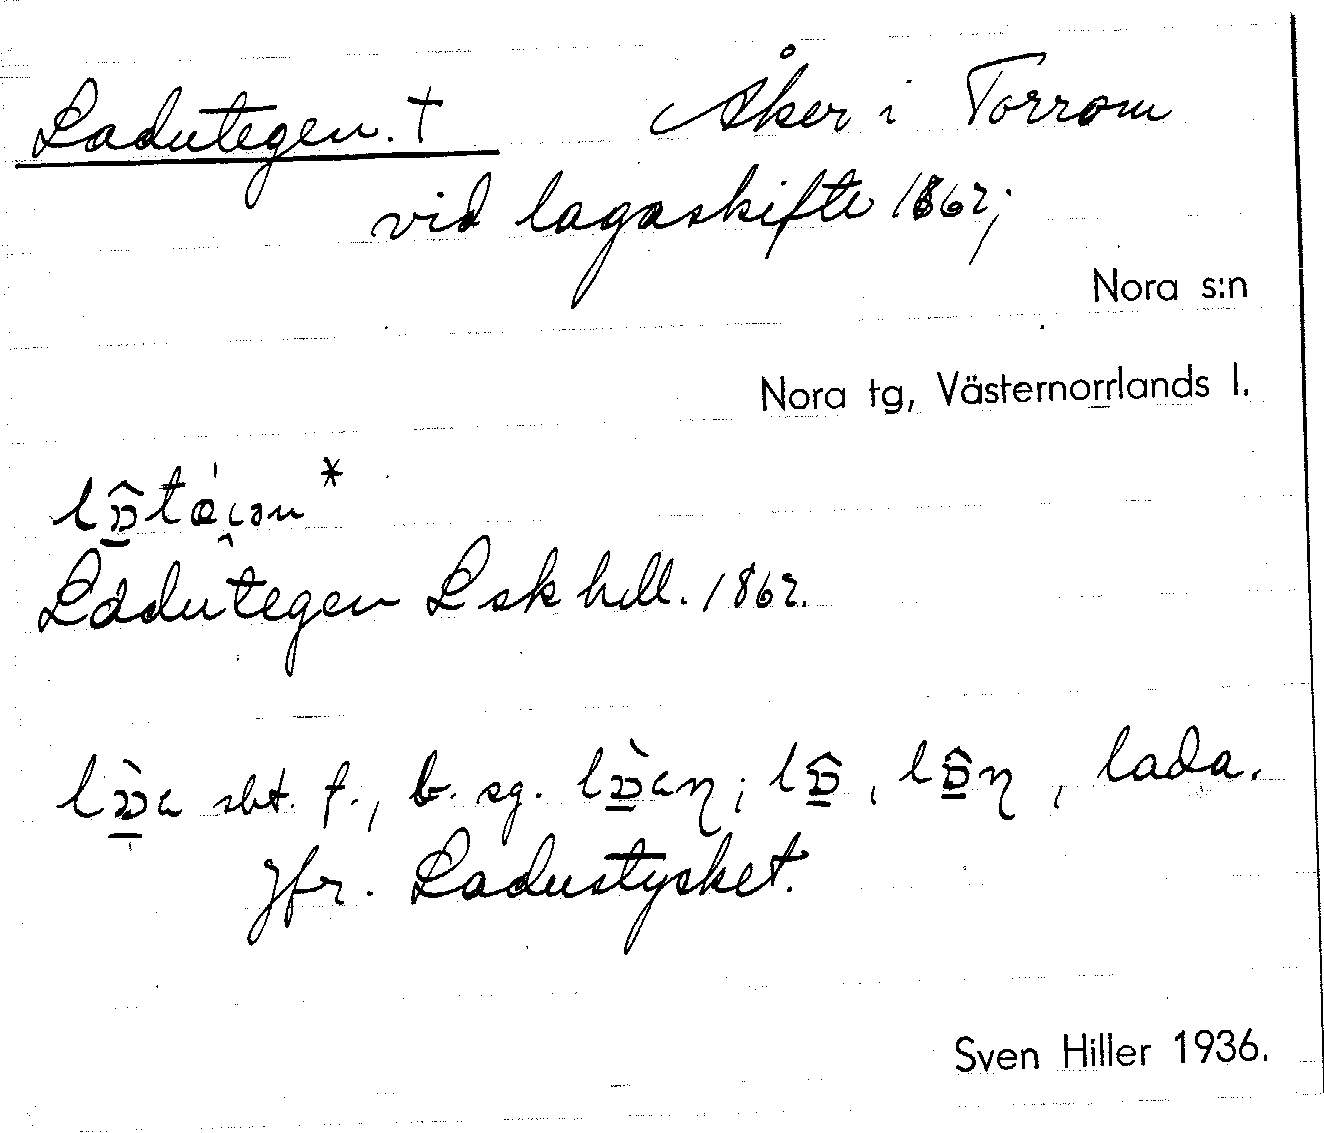 Ladutegen. † Åker i Torrom
vid lagaskifte 1862;
Nora s:n
Nora tg, Västernorrlands l.
Ladutegen Lsk hdl. 1862.
sbt. f., b. sg. lada.
Jfr. Ladustycket.
Sven Hiller 1936.